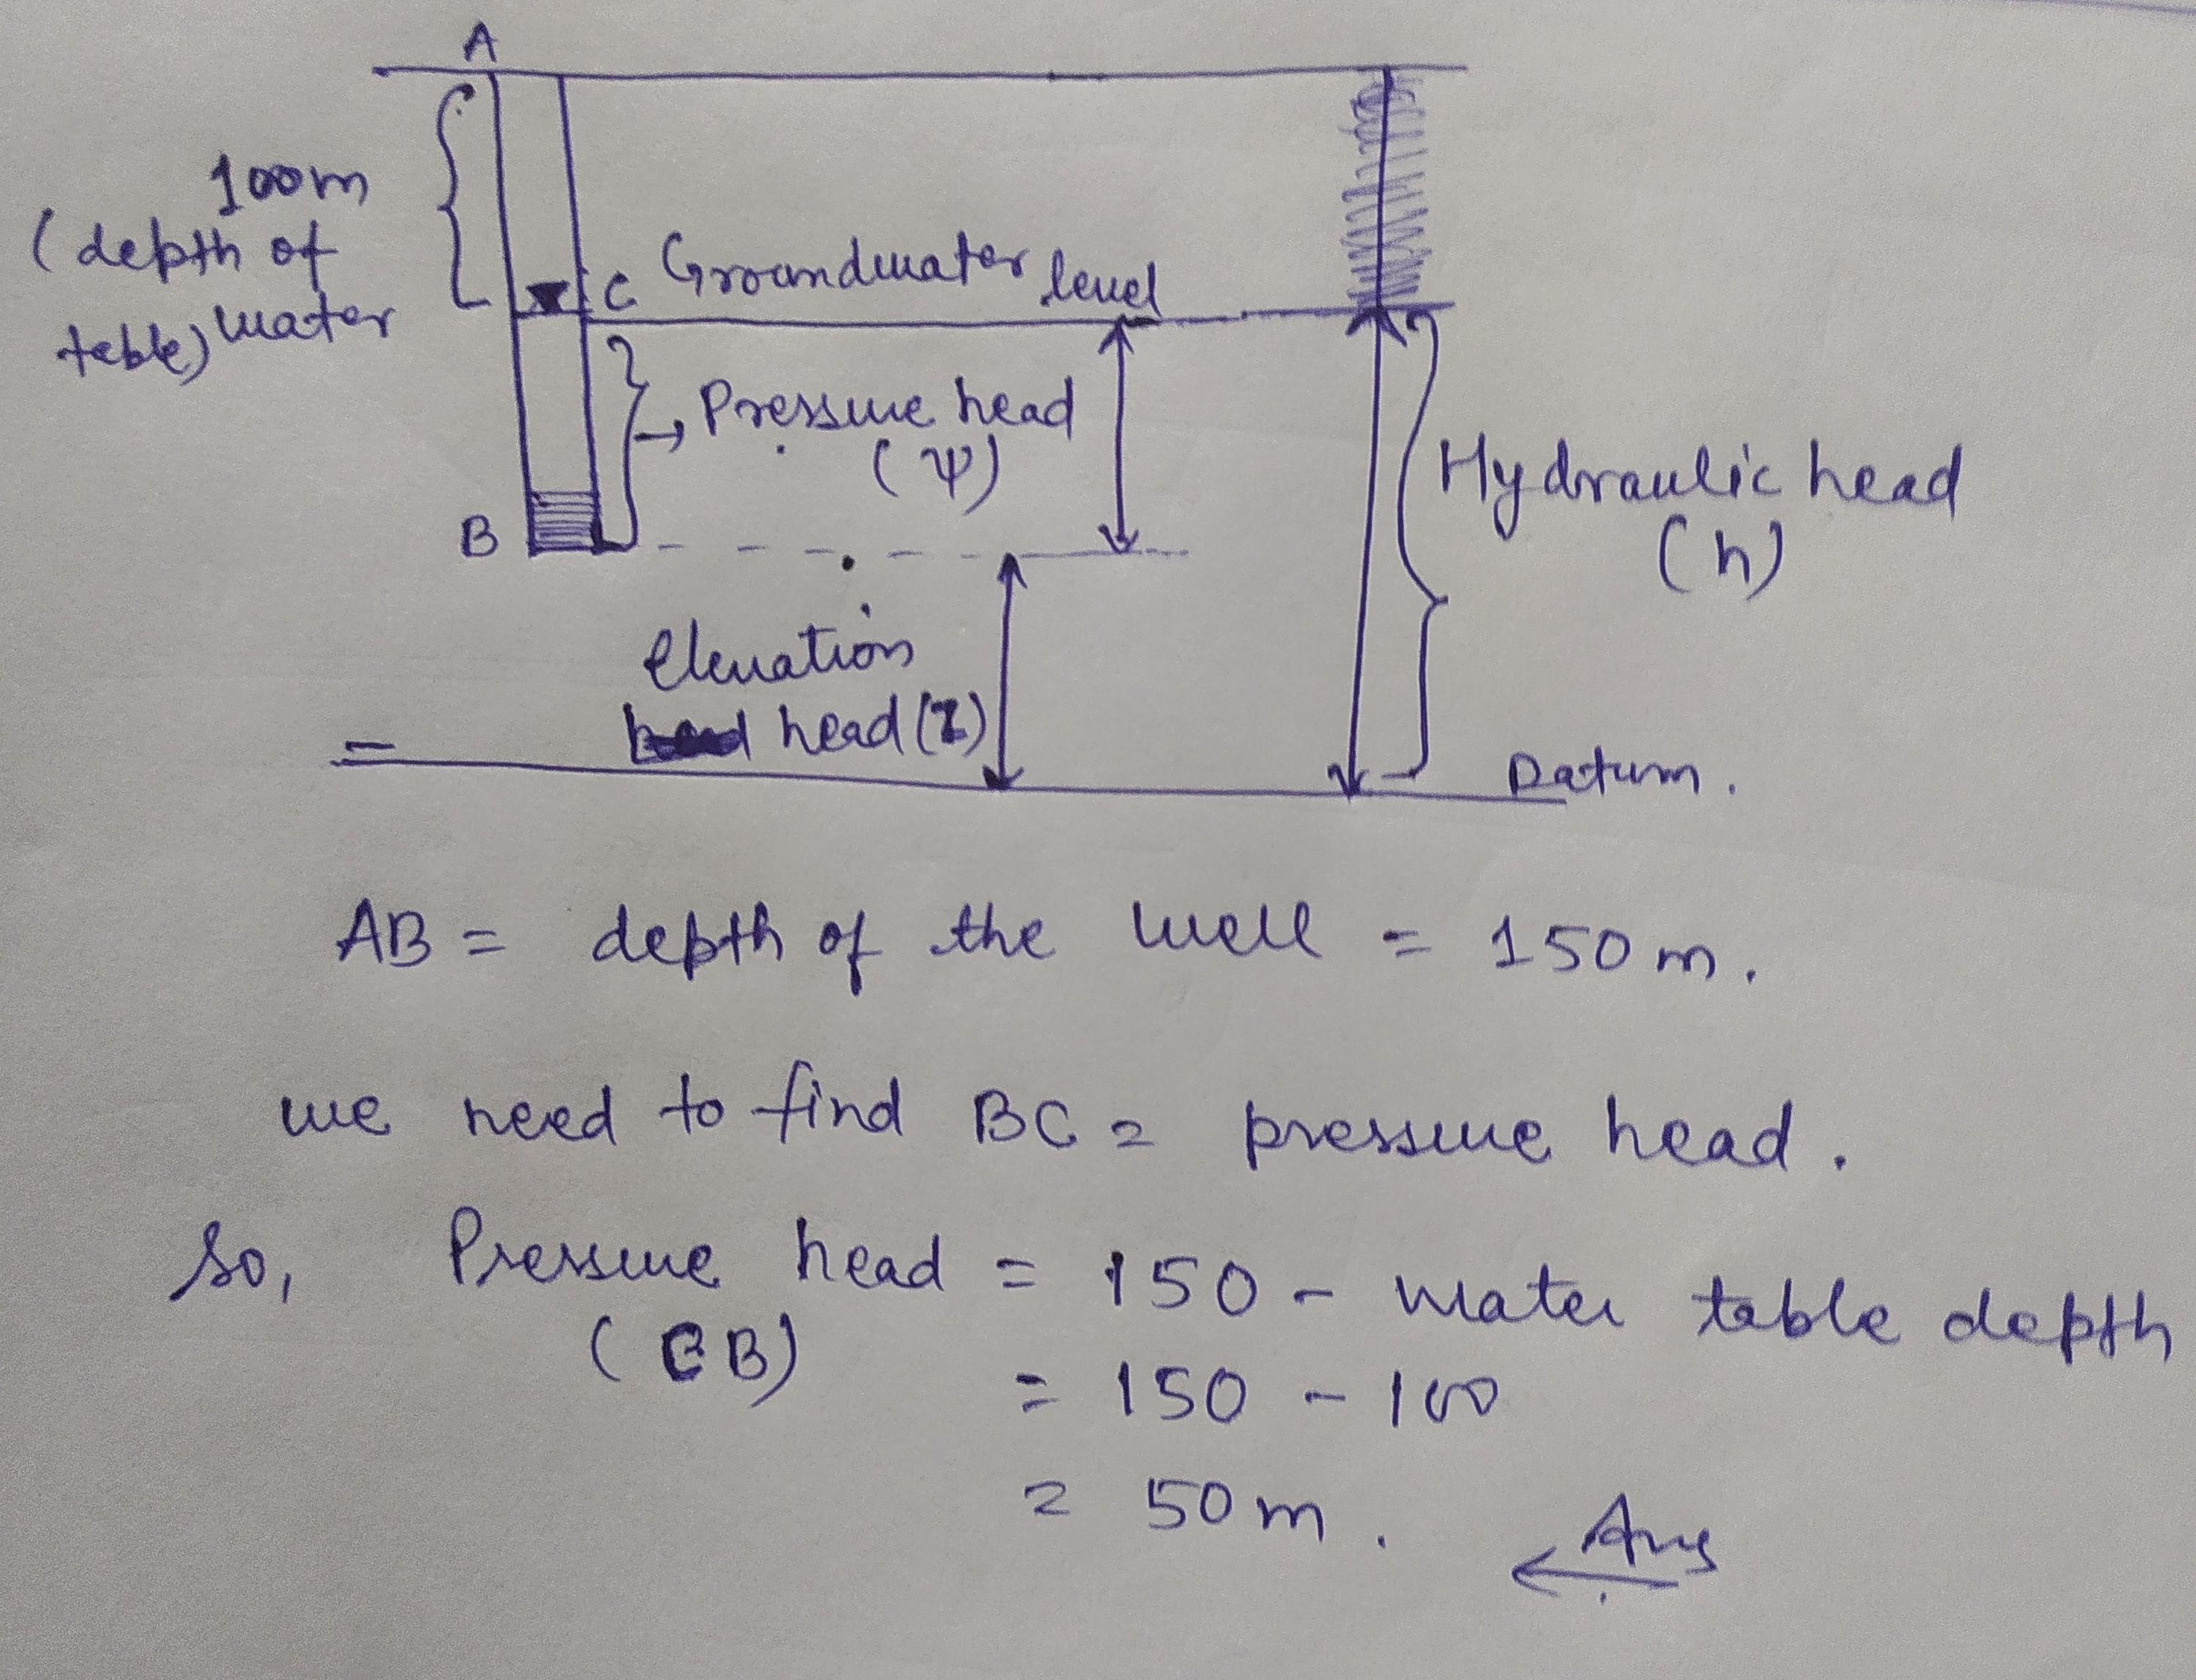 A
100m
(depth of
water
table)
C Groundwater level
Pressure head
(ψ)
B
Hydraulic head
(h)
Elevation
head (z)
Datum.
AB = depth of the well = 150 m.
we need to find BC = pressure head.
So, Pressure head = 150 - water table depth
(CB)
= 150 - 100
= 50 m.
Ans